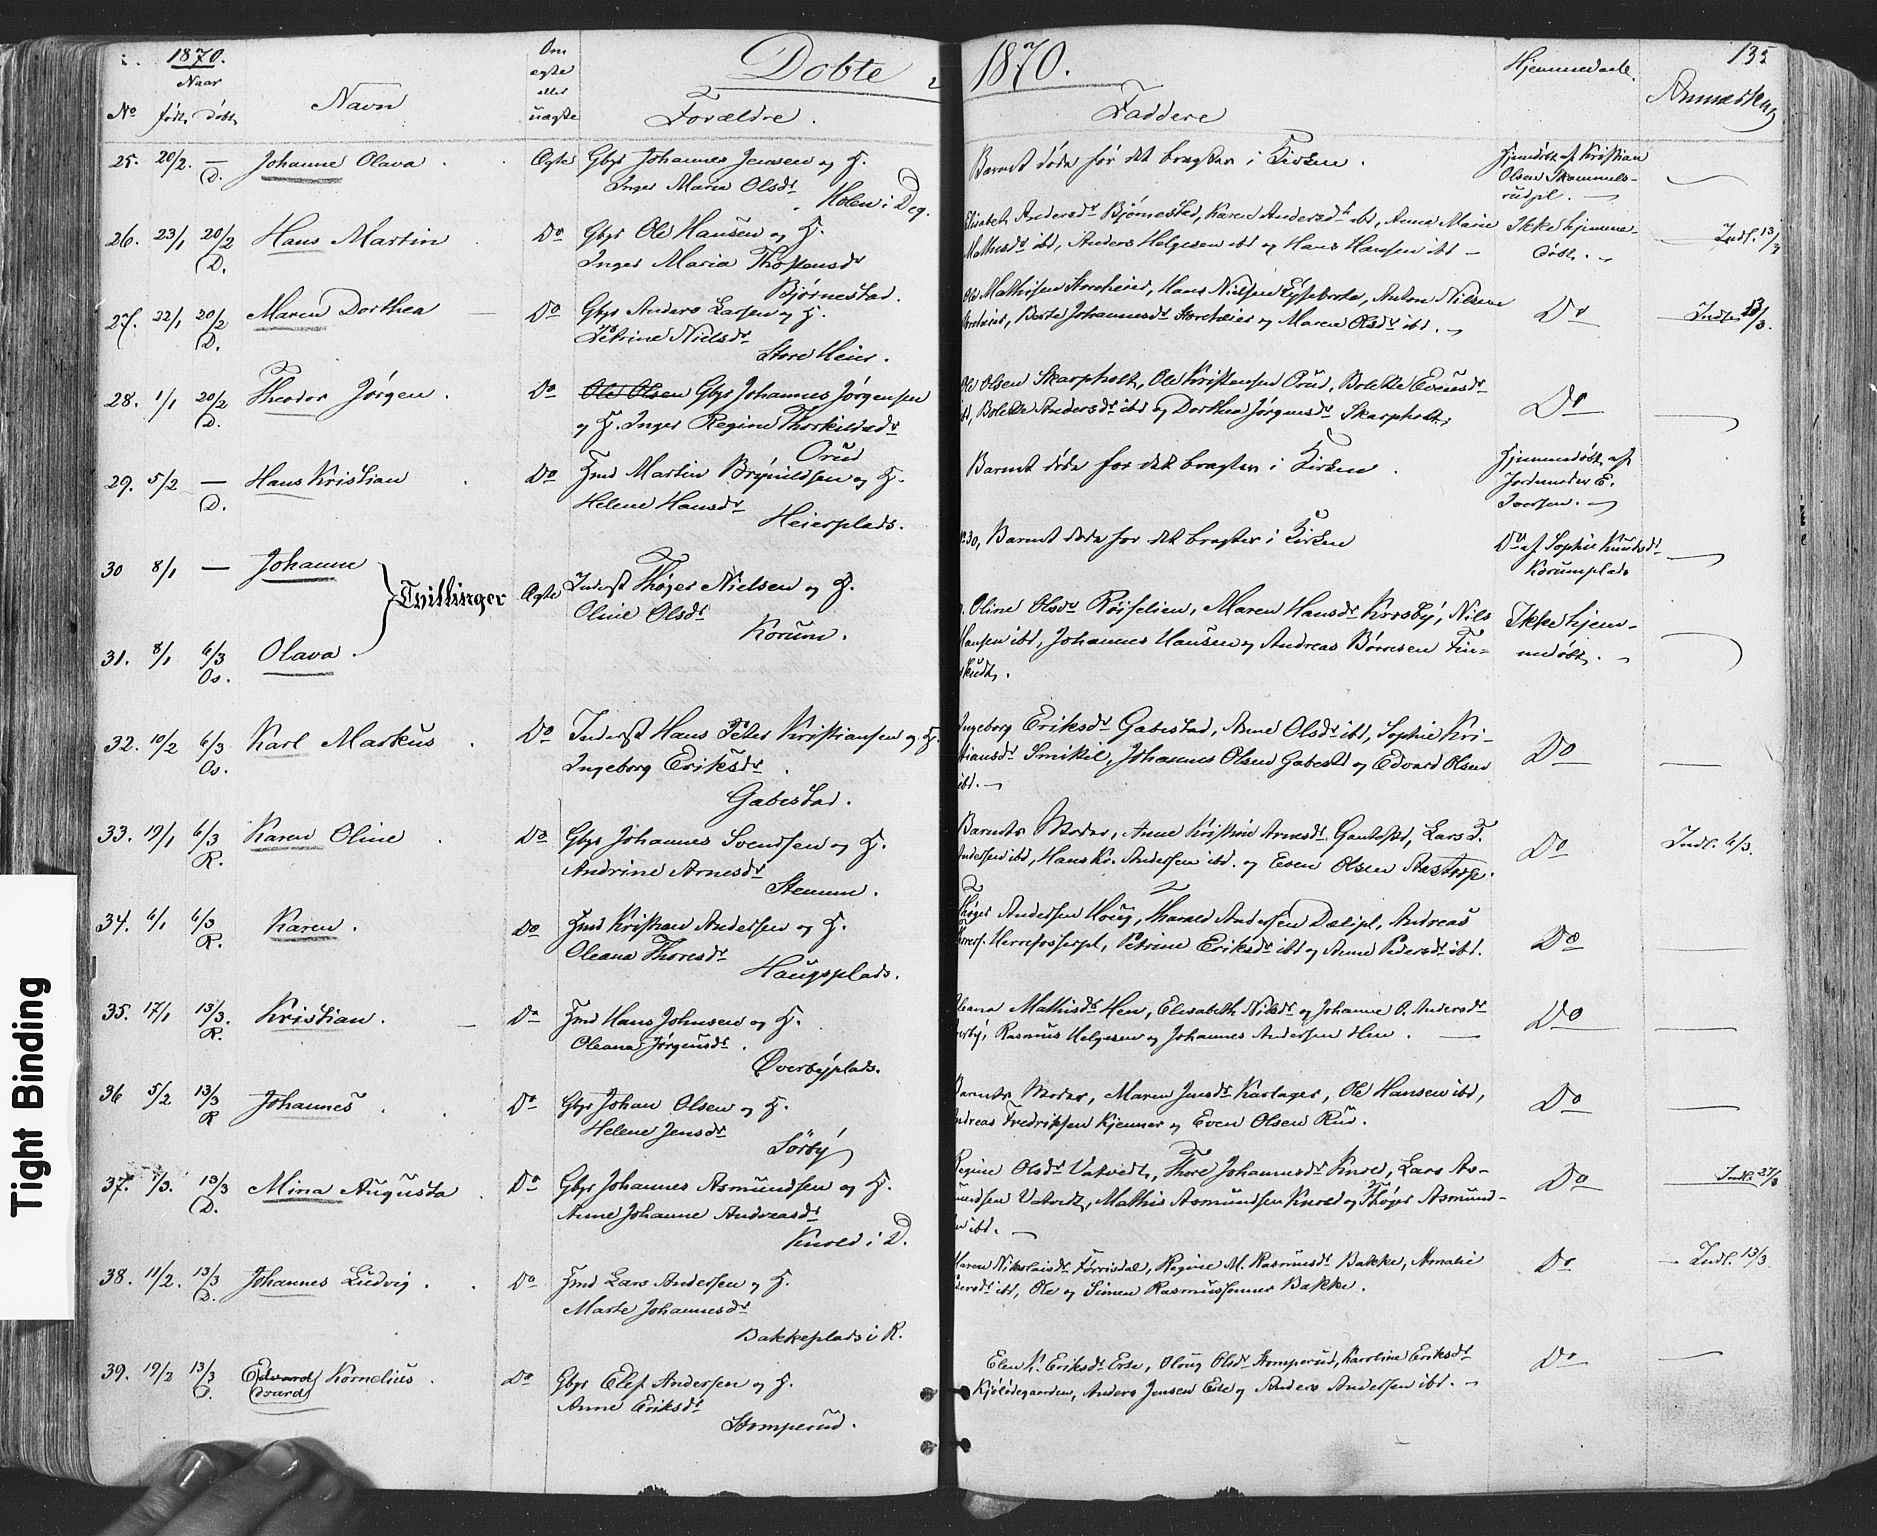 1870.
Døbte
1870.
132
No
Naar
født, døbt,
Navn
Om
ægte
eller
uægte
Forældre.
Faddere
Hjemmedøbt.
Anmærkng
25. 20/2. — Johanne Olava. Ægte Gbr Johannes Jensen og H. Barnet døde før det bragtes i Kirken. Hjemdøbt af Kristian
D. Inger Maria Olsdr Olsen Skammels-
Holen i Deg. rudpl.
26. 23/1 20/2 Hans Martin Do Gbr Ole Hansen og H. Elisabeth Andersdr Bjørnestad, Karen Andersdr ibd, Anna Marie Ikke hjemme- Indf. 13/3
D. Inger Maria Thostensdr Mathisdr ibd, Anders Helgesen ibd og Hans Hansen ibd — døbt.
Bjørnestad.
27. 22/1 20/2 Maren Dorthea Do Gbr Anders Larsen og H. Ole Mathisen Storeheier, Hans Nielsen, Anton Nilsen Do Indf. 13/3.
D. Petrine Nielsdr Berte Johannesdr Storeheier og Maren Olsdr ibd.
Store Heier.
28. 1/1 20/2 Theodor Jørgen. Do Ole Olsen Gbr Johannes Jørgensen Ole Olsen Skarpholt, Ole Kristensen Orud, Bolette Evensdr Do
D. og H. Inger Regine Thorkildsdr ibd, Bolette Andersdr ibd og Dorthea Jørgensdr Skarpholt.
Orud
29. 5/2 — Hans Kristian Do Hmd Martin Brynildsen og H. Barnet døde før det bragtes i Kirken. Hjemmedøbt af
D. Helene Hansdr Jordmoder E.
Heierplads. Iversen.
30 8/1 — Johanne Ægte Inderst Thøger Nielsen og H. No 30, Barnet døde før det bragtes i Kirken Do af Sophie Knudsdr
Oline Olsdr Korumplads
Tvillinger
Korum.
31. 8/1 6/3 Olava. Oline Olsdr Røiselien, Maren Hansdr Krosby, Nils Ikke hjem-
Os. Hansen ibd, Johannes Hansen og Andreas Børresen Fin- medøbt.
skudt.
32. 10/2 6/3 Karl Markus. Do Inderst Hans Peter Kristiansen og H. Ingeborg Eriksdr Gabestad, Anne Olsdr ibd, Sophie Kri- Do
Os. Ingeborg Eriksdr. stiansdr Smikil, Johannes Olsen Gabestd og Edvard Olsen
Gabestad. ibd.
33. 19/1 6/3 Karen Oline. Do Gbr Johannes Svendsen og H. Barnets Moder, Anne Kristine Arnesdr, Lars T. Do Indf. 6/3.
R. Andrine Arnesdr Andersen ibd, Hans Kr. Andersen ibd. og Even Olsen Aastorp.
Stemme.
34. 6/1 6/3 Karen. Do Hmd Kristian Andersen og H. Thøger Andersen Houg, Harald Andersen Dælipl, Andreas Do
R. Oleana Thoresdr Herrefosserpl, Petrine Eriksdr ibd og Anne Pedersdr ibd.
Haugsplads.
35. 17/1 13/3. Kristian. Do Hmd Hans Johnsen og H. Oleana Mathisdr Hen, Elisabeth Nilsdr og Johanne O. Andersdr Do
R. Oleana Jørgensdr. Øverby, Rasmus Helgesen og Johannes Andersen Hen.
Øverbyplads.
36 5/2 13/3 Johannes. Do Gbr Johan Olsen og H. Barnets Moder, Maren Jensdr Kartager, Ole Hansen ibd, Do
R Helene Jensdr Andreas Fredriksen Kjenner og Even Olsen Rud.
Sørby
37. 7/3. 13/3 Mina Augusta. Do Gbr Johannes Asmundsen og H. Regine Olsdr Vatvedt, Thore Johannesdr Knold, Lars As- Do Indf. 27/3
D. Anne Johanne Andreasdr mundsen Vatvedt, Mathis Asmundsen Knold og Thøger Asmund-
Knold i D. sen ibd.
38. 11/2. 13/3 Johannes Ludvig. Do Hmd Lars Andersen og H. Maren Nikolaisdr Førrisdal, Regine M. Rasmusdr Bakke, Amalie Do Indf. 13/3.
D. Marte Johannesdr Pedersdr ibd, Ole og Simen Rasmussønner Bakke.
Bakkeplads i R.
39. 19/2 13/3 Edvard Kornelius. Do Gbr Elef Andersen og H. Elen K. Eriksdr Ese, Oloug Olsdr Stomperud, Karoline Eriksdr Do
D. Edvard Anne Eriksdr Kjølsdegaarden, Anders Jensen Ese og Anders Andersen ibd.
Stomperud.
Tight Binding